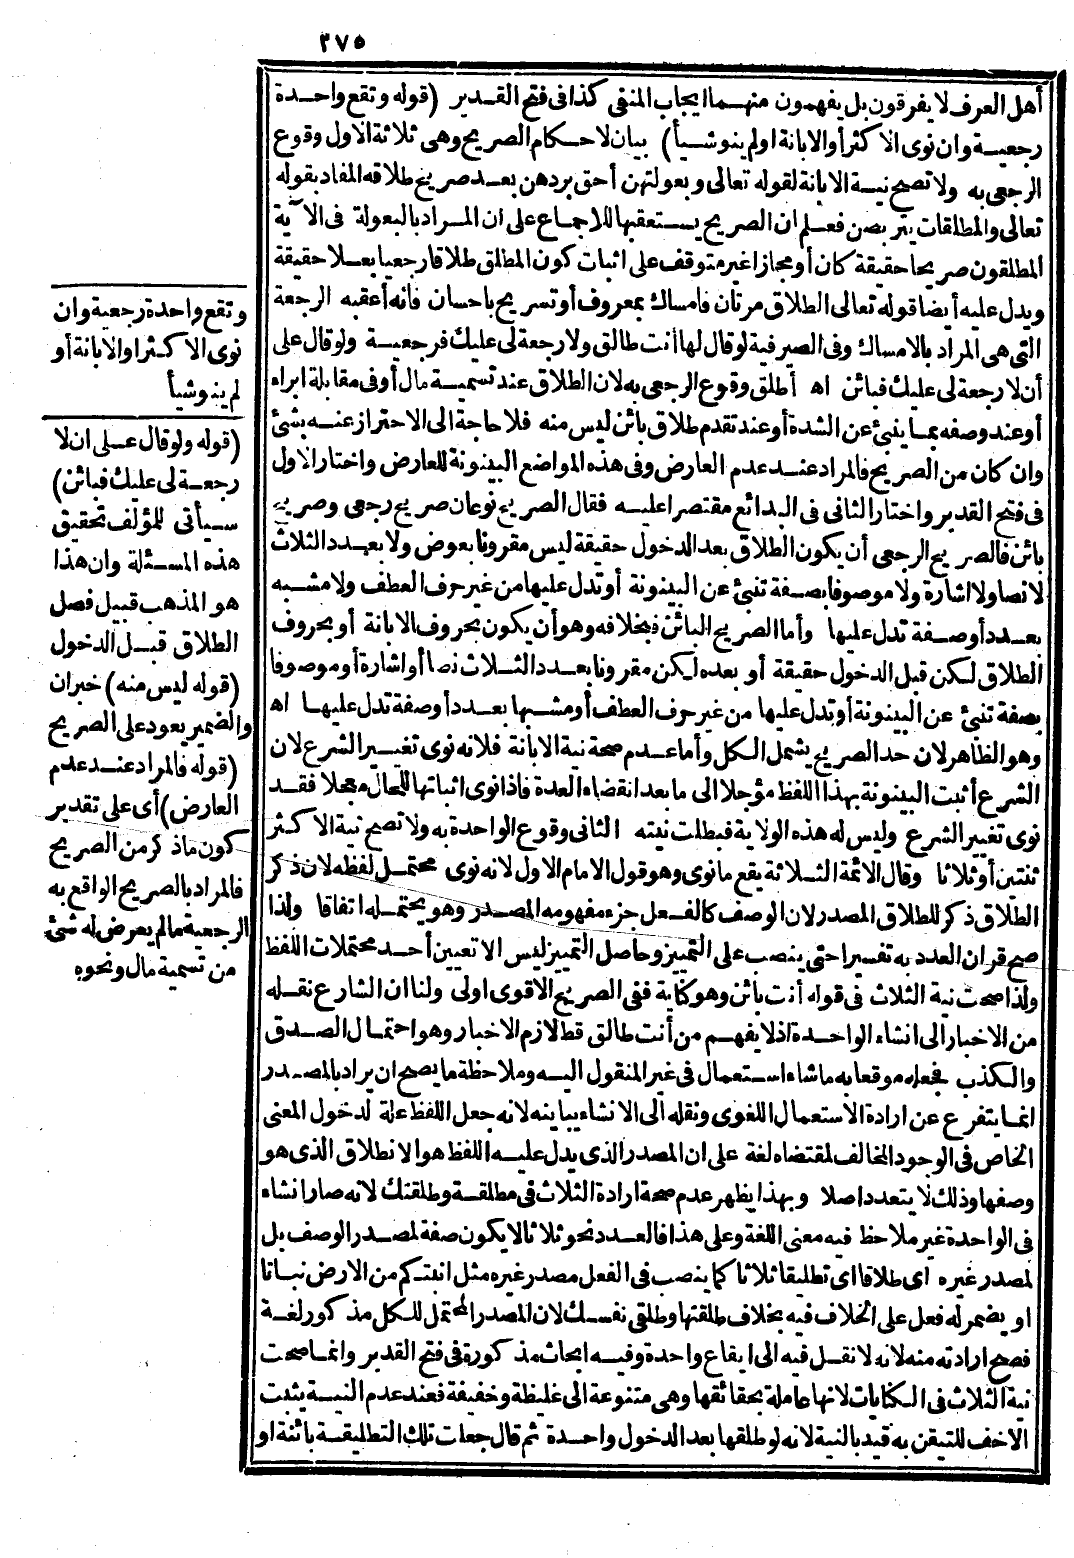 ٢٧٥
أهل العرف لا يفرقون بل يفهمون منهما ايجاب المنفى كذا فى فتح القدير (قوله وتقع واحدة
رجعية وان نوى الاكثر أو الابانة أولم ينو شيأ) بيان لاحكام الصريح وهى ثلاثة الاول وقوع
الرجعى به ولا تصح نية الابانة لقوله تعالى وبعولتهن أحق بردهن بعد صريح طلاقه المفاد بقوله
تعالى والمطلقات يتربصن فعلم ان الصريح يستعقبها للاجماع على ان المراد بالبعولة فى الآية
المطلقون صريحا حقيقة كان أو مجازا غير متوقف على اثبات كون المطلق طلاقا رجعيا بعلا حقيقة
ويدل عليه أيضا قوله تعالى الطلاق مرتان فامساك بمعروف أو تسريح باحسان فانه أعقبه الرجعة
التى هى المراد بالامساك وفى الصيرفية لو قال لها أنت طالق ولا رجعة لى عليك فرجعية ولو قال على
أن لا رجعة لى عليك فبائن اه أطلق وقوع الرجعى به لان الطلاق عند تسمية مال أو فى مقابلة ابراء
أو عند وصفه بما ينبئ عن الشدة أو عند تقدم طلاق بائن ليس منه فلا حاجة الى الاحتراز عنه بشئ
وان كان من الصريح فالمراد عند عدم العارض وفى هذه المواضع البينونة للعارض واختار الاول
فى فتح القدير واختار الثانى فى البدائع مقتصرا عليه فقال الصريح نوعان صريح رجعى وصريح
بائن فالصريح الرجعى أن يكون الطلاق بعد الدخول حقيقة ليس مقرونا بعوض ولا بعدد الثلاث
لا نصا ولا اشارة ولا موصوفا بصفة تنبئ عن البينونة أو تدل عليها من غير حرف العطف ولا مشبه
بعدد أو صفة تدل عليها وأما الصريح البائن فبخلافه وهو أن يكون بحروف الابانة أو بحروف
الطلاق لكن قبل الدخول حقيقة أو بعده لكن مقرونا بعدد الثلاث نصا أو اشارة أو موصوفا
بصفة تنبئ عن البينونة أو تدل عليها من غير حرف العطف أو مشبها بعدد أو صفة تدل عليها اه
وهو الظاهر لان حد الصريح يشمل الكل وأما عدم صحة نية الابانة فلانه نوى تغيير الشرع لان
الشرع أثبت البينونة بهذا اللفظ مؤجلا الى ما بعد انقضاء العدة فاذا نوى اثباتها للحال معجلا فقد
نوى تغيير الشرع وليس له هذه الولاية فبطلت نيته الثانى وقوع الواحدة به ولا تصح نية الاكثر
ثنتين أو ثلاثا وقال الائمة الثلاثة يقع ما نوى وهو قول الامام الاول لانه نوى محتمل لفظه لان ذكر
الطلاق ذكر للطلاق المصدر لان الوصف كالفعل جزء مفهومه المصدر وهو يحتمله اتفاقا ولذا
صح قران العدد به تفسيرا حتى ينصب على التمييز وحاصل التمييز ليس الا تعيين أحد محتملات اللفظ
ولذا صحت نية الثلاث فى قوله أنت بائن وهو كناية ففى الصريح الاقوى أولى ولنا ان الشارع نقله
من الاخبار الى انشاء الواحدة اذ لا يفهم من أنت طالق قط لازم الاخبار وهو احتمال الصدق
والكذب فجعله موقعا به ما شاء استعمال فى غير المنقول اليه وملاحظة ما يصح ان يراد بالمصدر
انما يتفرع عن ارادة الاستعمال اللغوى ونقله الى الانشاء يباينه لانه جعل اللفظ علة لدخول المعنى
الخاص فى الوجود المخالف لمقتضاه لغة على ان المصدر الذى يدل عليه اللفظ هو الانطلاق الذى هو
وصفها وذلك لا يتعدد اصلا وبهذا يظهر عدم صحة ارادة الثلاث فى مطلقة وطلقتك لانه صار انشاء
فى الواحدة غير ملاحظ فيه معنى اللغة وعلى هذا فالعدد نحو ثلاثا لا يكون صفة لمصدر الوصف بل
لمصدر غيره اى طلاقا اى تطليقا ثلاثا كما ينصب فى الفعل مصدر غيره مثل انبتكم من الارض نباتا
او يضمر له فعل على الخلاف فيه بخلاف طلقتها وطلقى نفسك لان المصدر المحتمل للكل مذكور لغة
فصح ارادته منه لانه لا نقل فيه الى ايقاع واحدة وفيه ابحاث مذكورة فى فتح القدير وانما صحت
نية الثلاث فى الكنايات لانها عاملة بحقائقها وهى متنوعة الى غليظة وخفيفة فعند عدم النية يثبت
الاخف للتيقن به قيد بالنية لانه لو طلقها بعد الدخول واحدة ثم قال جعلت تلك التطليقة بائنة او
وتقع واحدة رجعية وان
نوى الاكثر او الابانة أو
لم ينو شيأ
(قوله ولو قال على ان لا
رجعة لى عليك فبائن)
سيأتى للمؤلف تحقيق
هذه المسئلة وان هذا
هو المذهب قبيل فصل
الطلاق قبل الدخول
(قوله ليس منه) خبر ان
والضمير يعود على الصريح
(قوله فالمراد عند عدم
العارض) أى على تقدير
كون ماذكر من الصريح
فالمراد بالصريح الواقع به
الرجعية مالم يعرض له شئ
من تسمية مال ونحوه